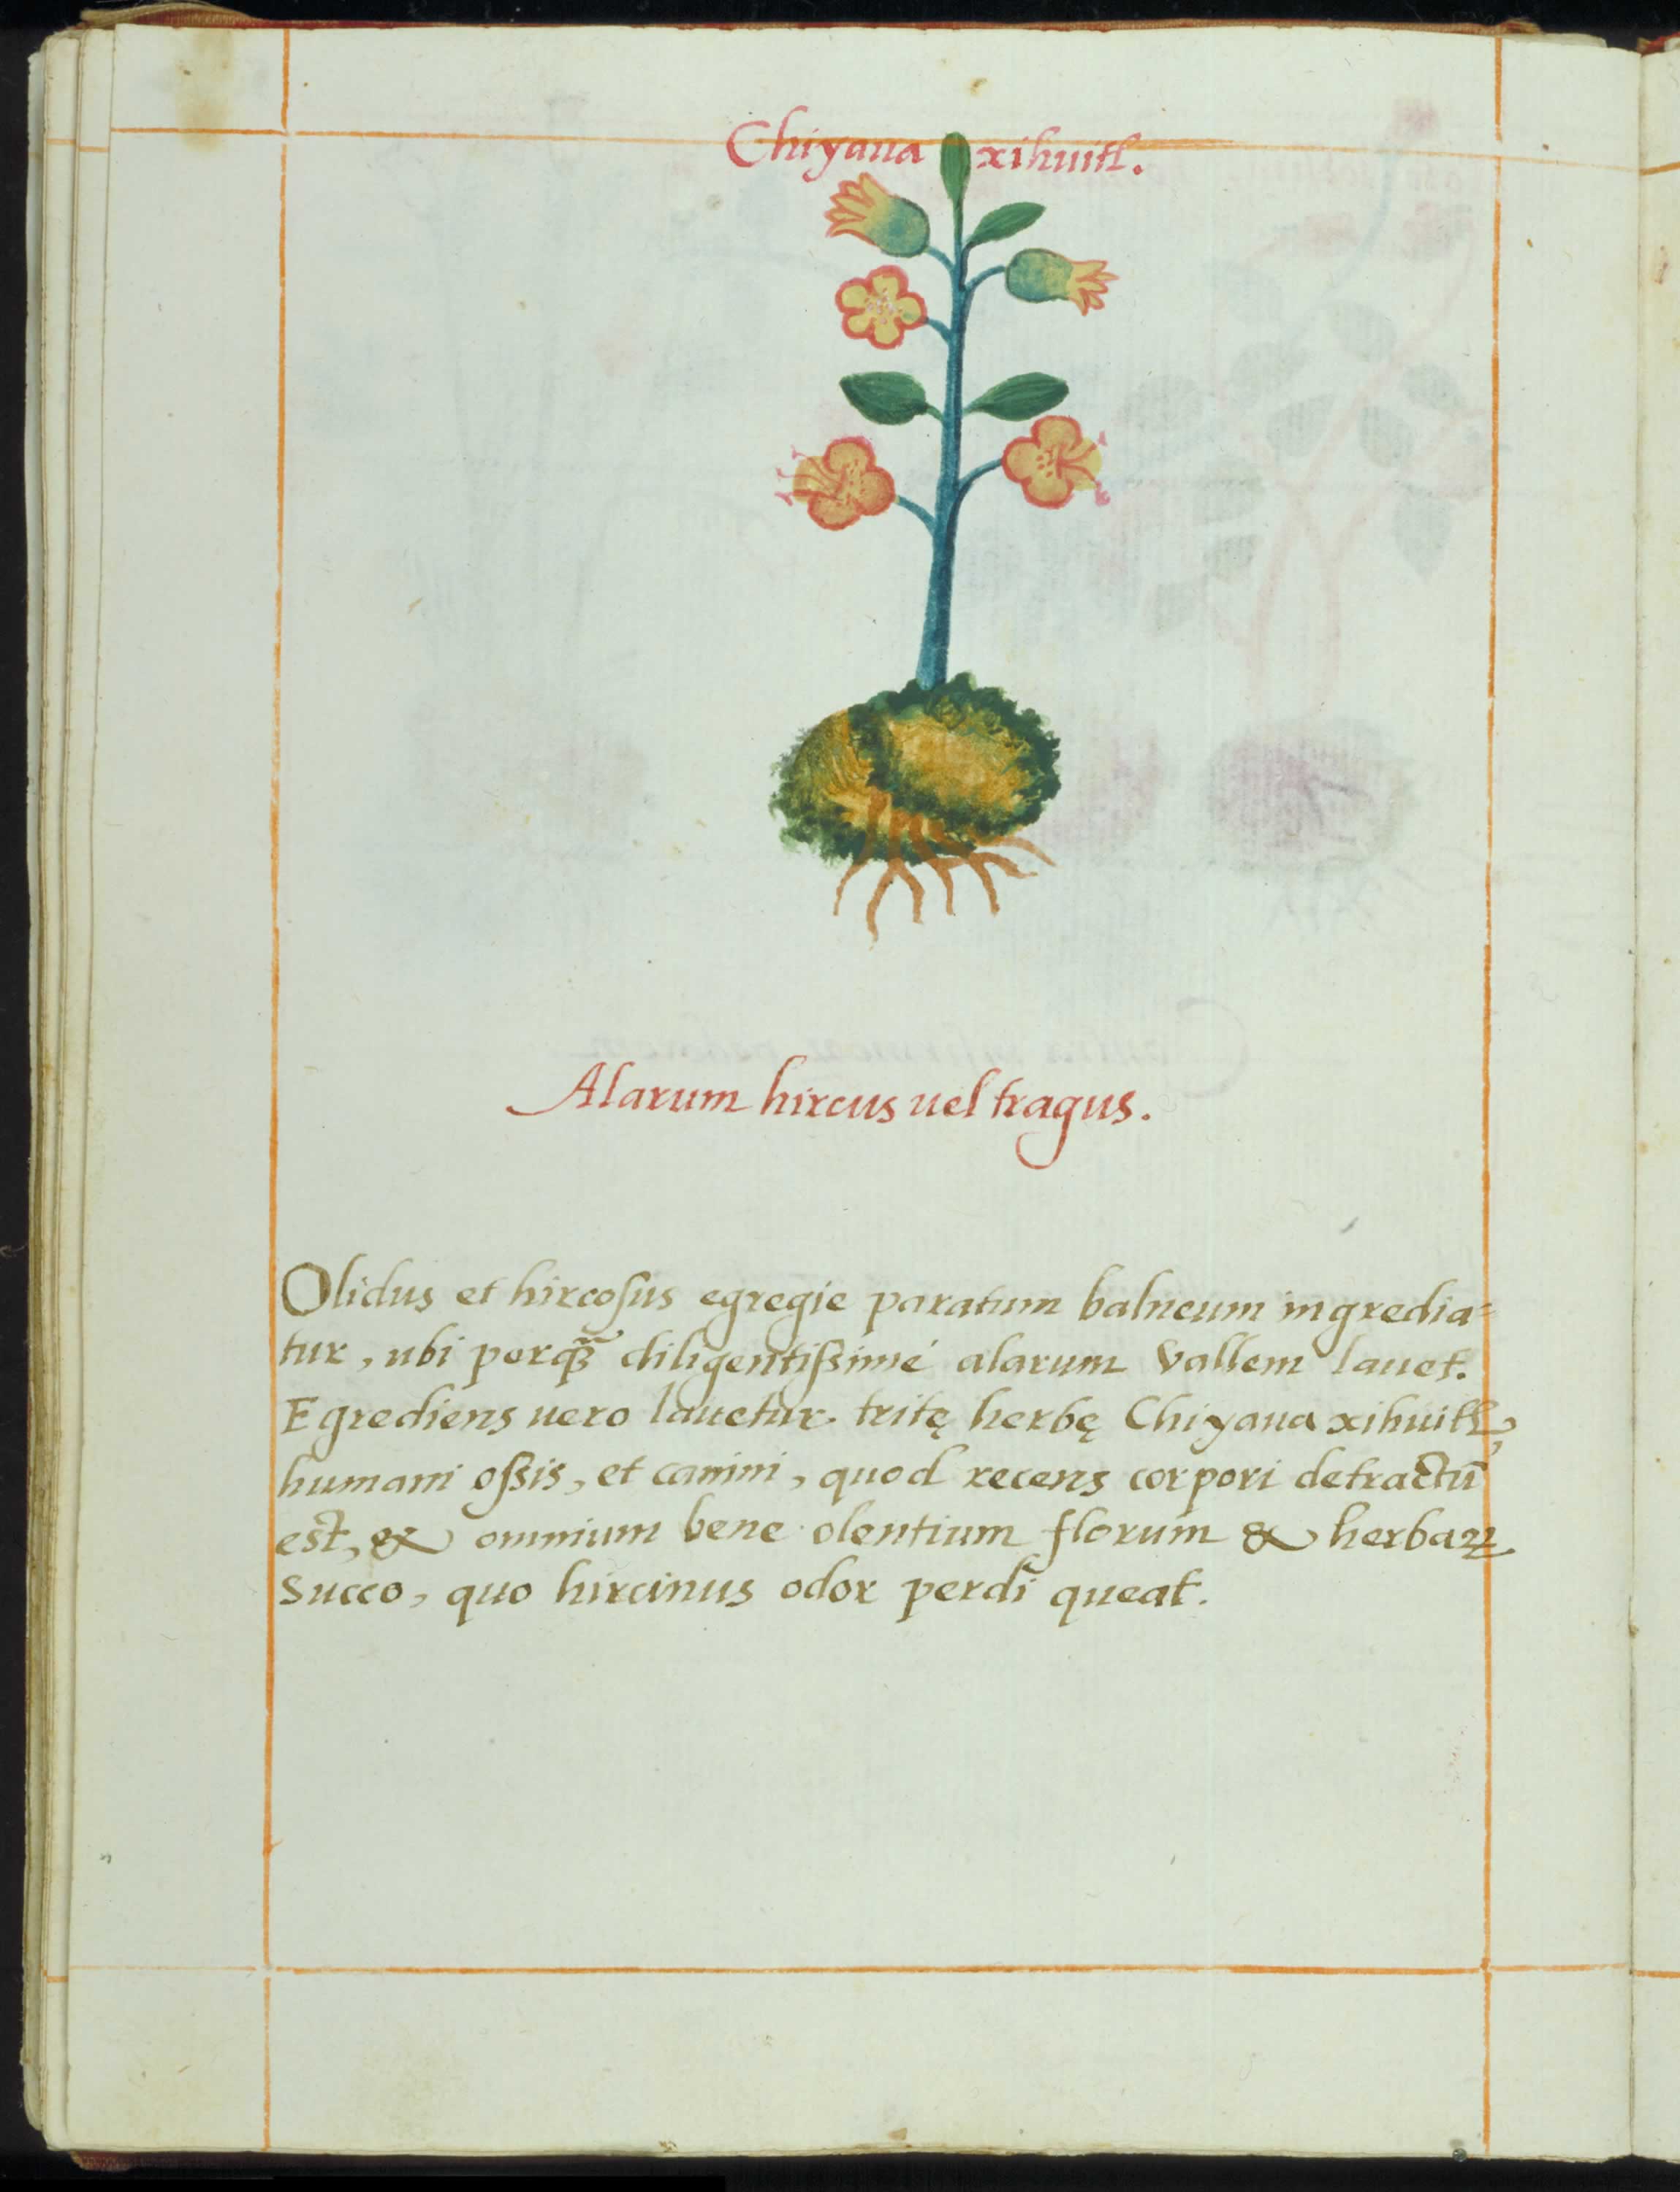 Chiyaua xihuitl.
Alarum hircus uel tragus.
Olidus et hircoſus egregie paratum balneum ingredia=
tur, ubi perq̃ʒ diligentiſsimé alarum vallem lauet.
Egrediens uero lauetur tritę herbę Chiyaua xihuitl,
humani oſsis, et canini, quod recens corpori detractū
est, & omnium bene olentium florum & herbaꝝ
succo, quo hircinus odor perdi queat.